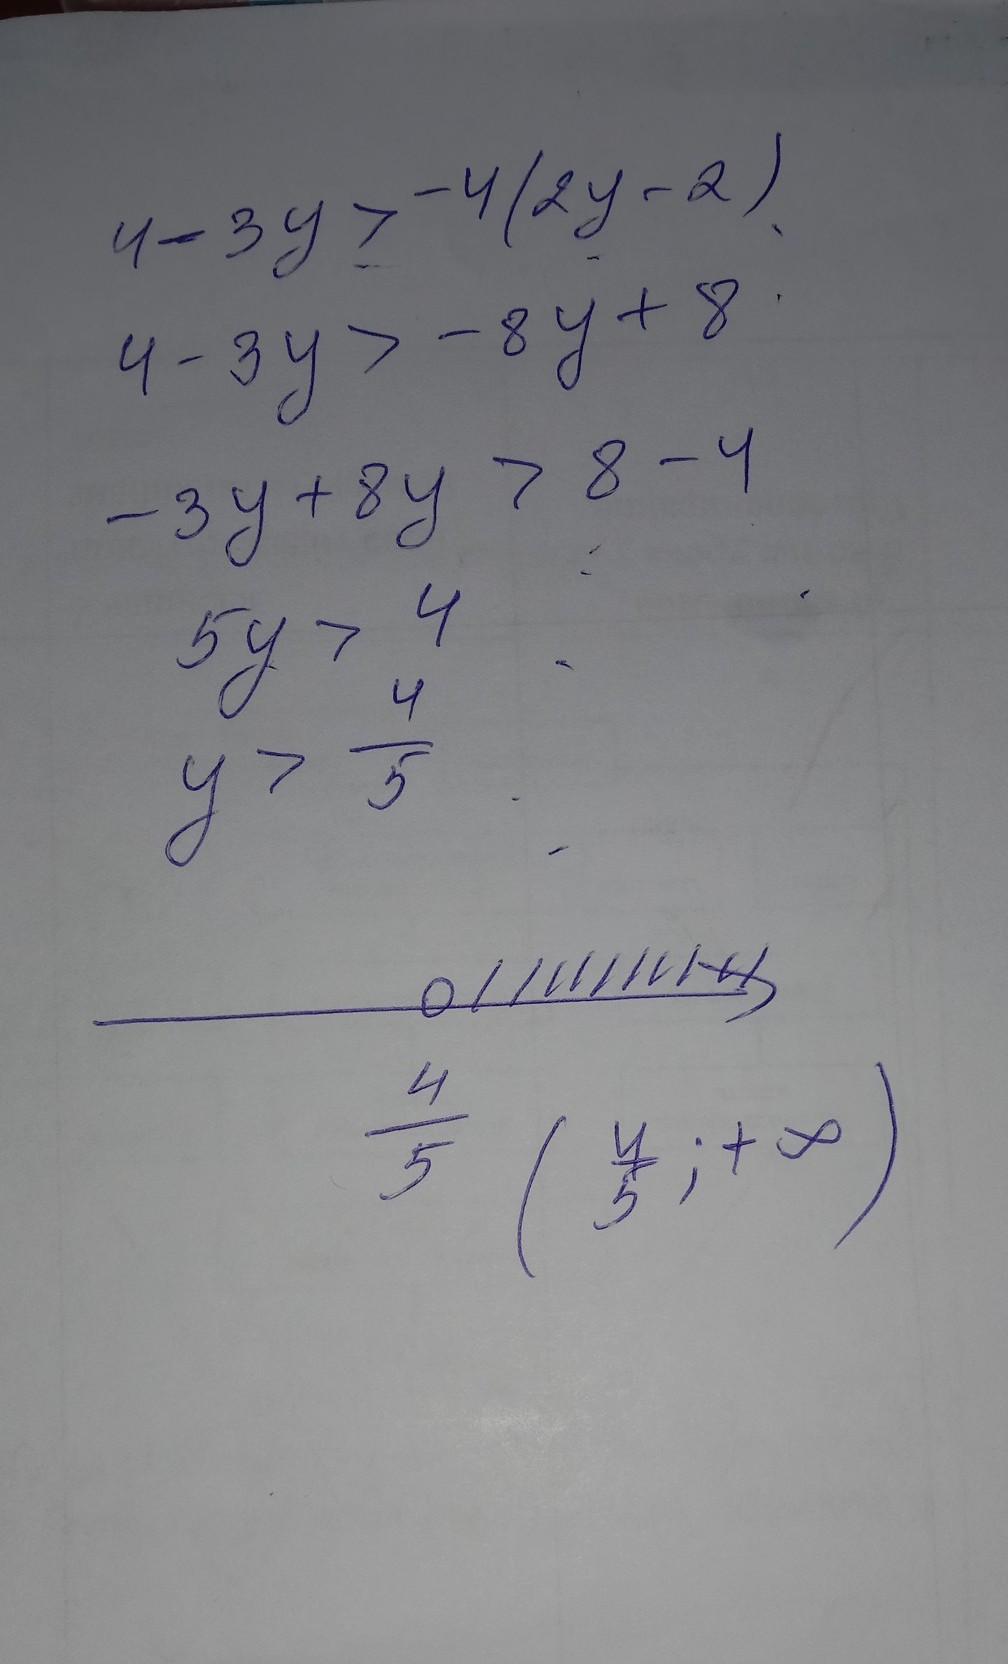 4-3y>-4(2y-2)
4-3y>-8y+8
-3y+8y>8-4
5y>4
y>4/5
4/5
(4/5;+∞)